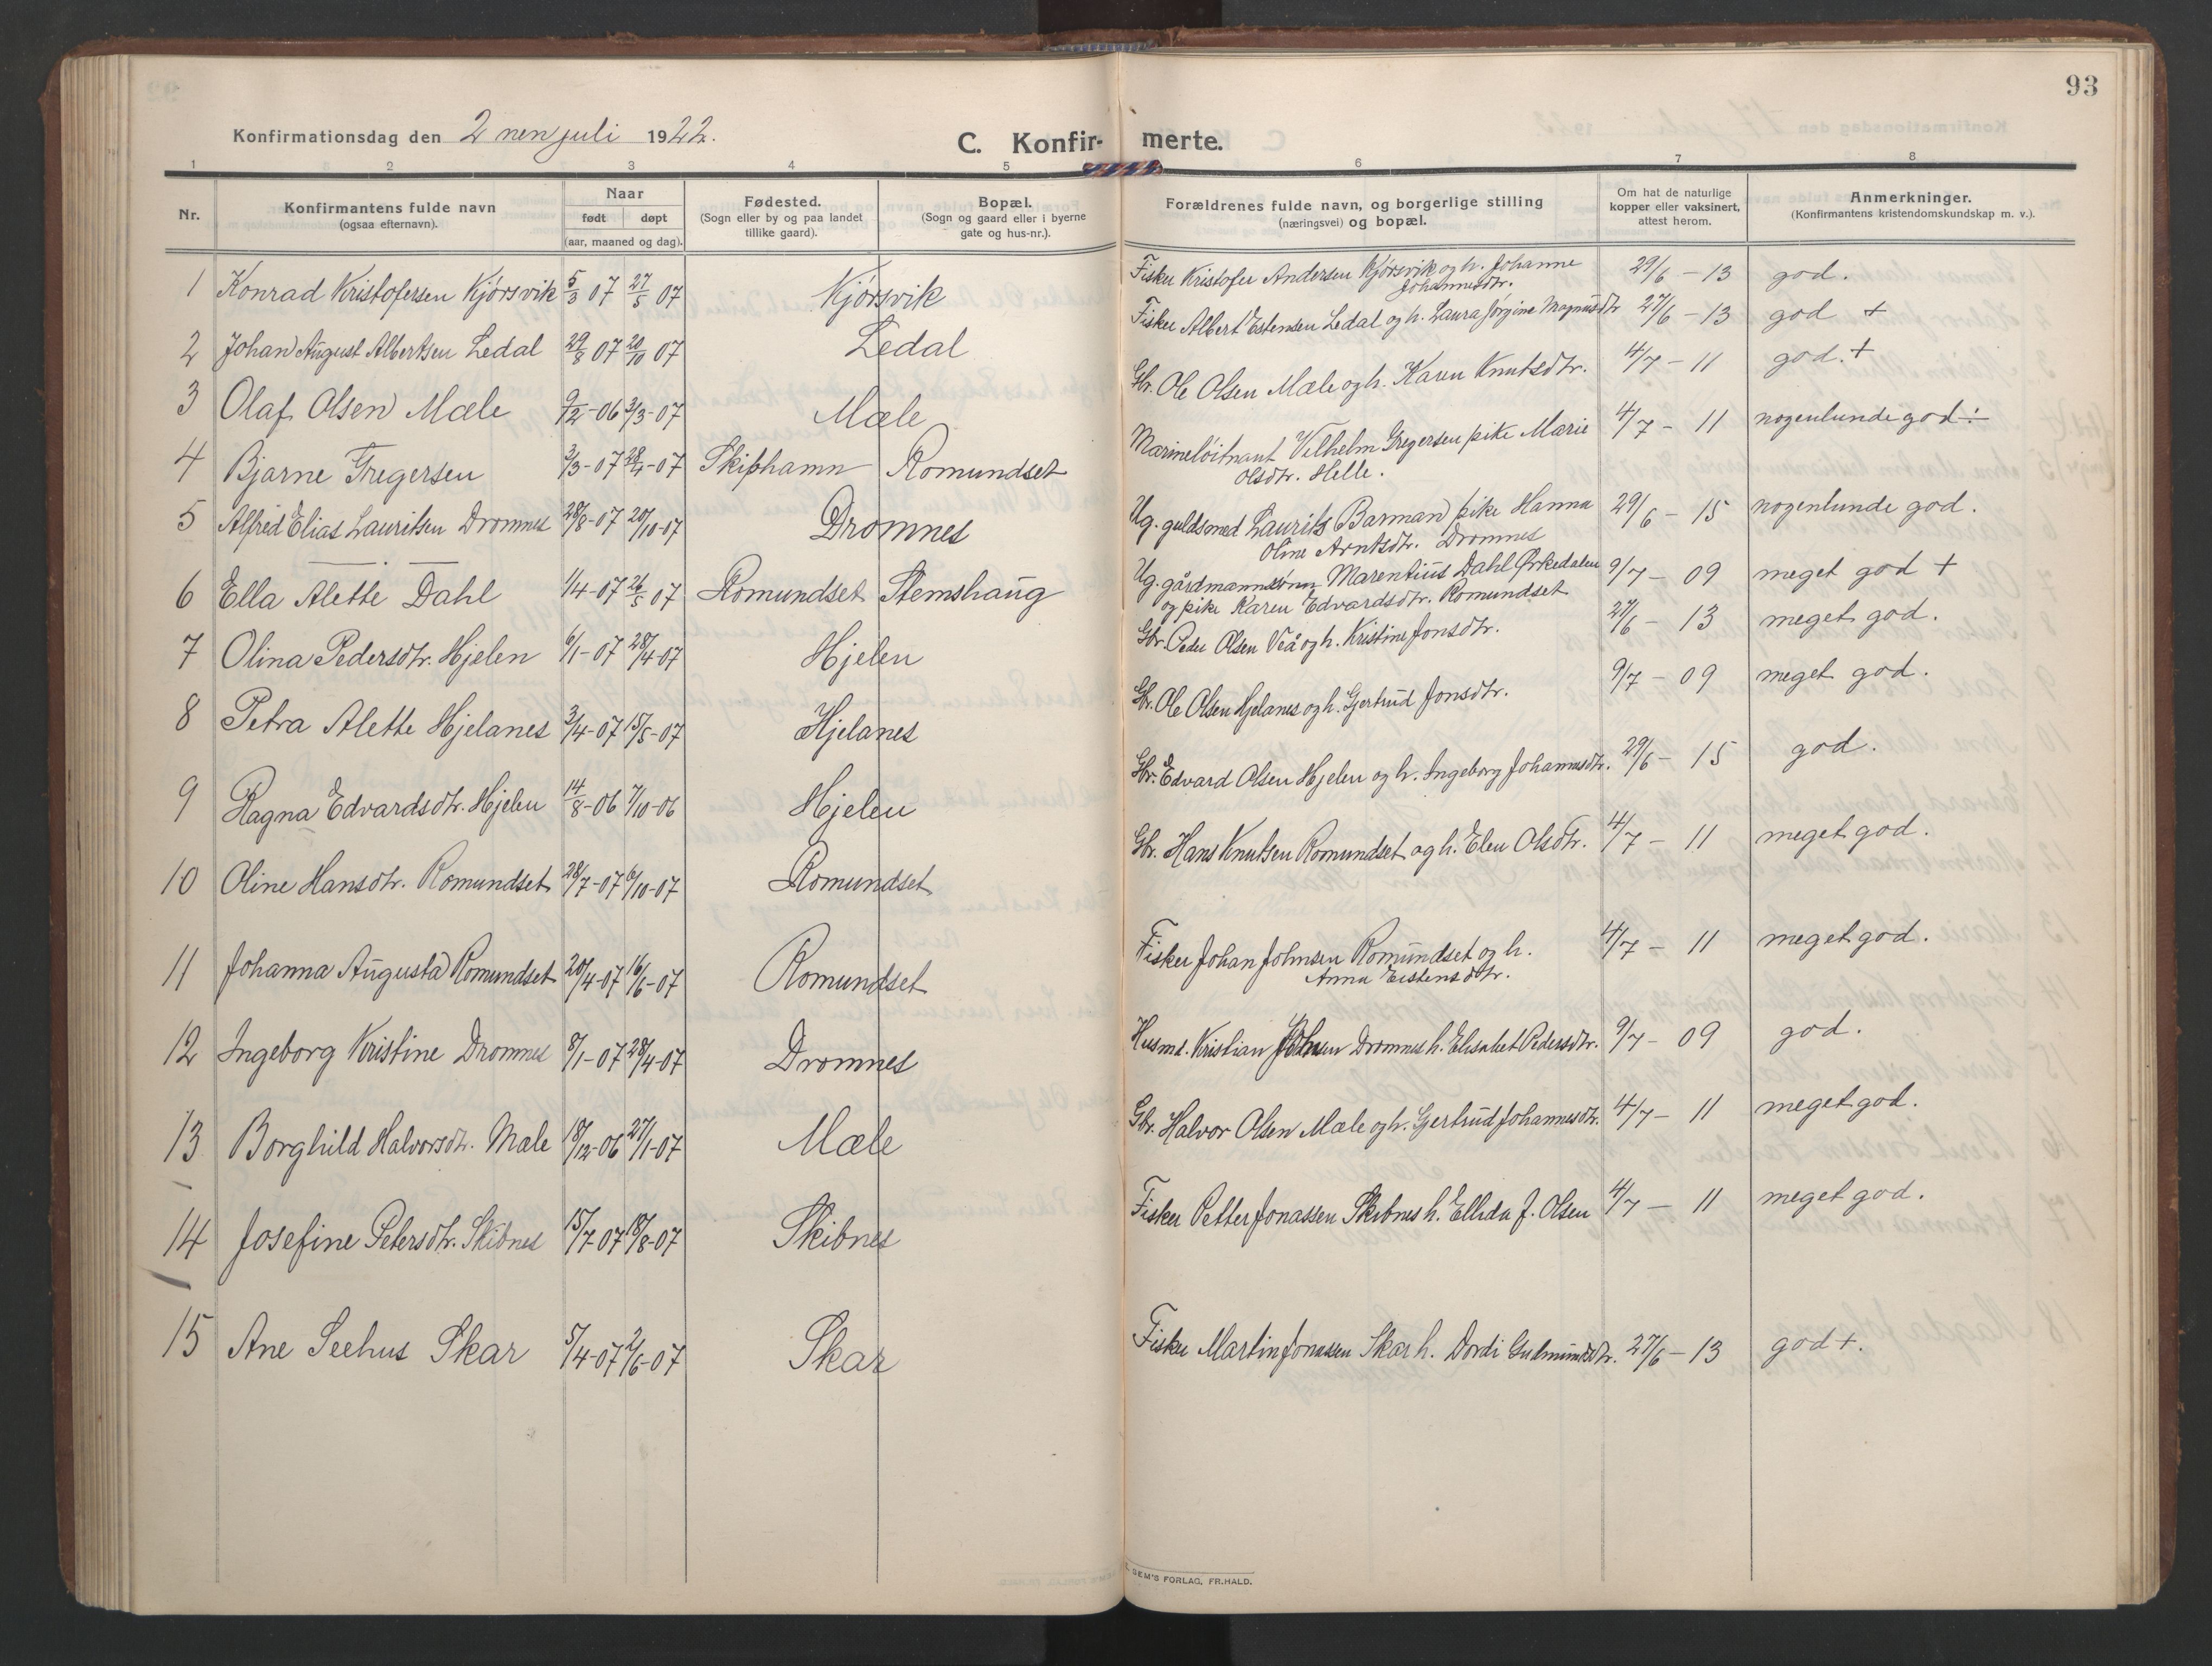 93
Konfirmationsdag den 2 nen juli 1922.
C. Konfir- merte.
1 2 3 4 5 6 7 8
Nr. Konfirmantens fulde navn (ogsaa efternavn). Naar født døpt (aar, maaned og dag). Fødested. (Sogn eller by og paa landet tillike gaard). Bopæl. (Sogn og gaard eller i byerne gate og hus-nr.). Forældrenes fulde navn, og borgerlige stilling (næringsvei) og bopæl. Om hat de naturlige kopper eller vaksinert, attest herom. Anmerkninger. (Konfirmantens kristendomskundskap m. v.).
1 Konrad Kristofersen Kjørsvik 5/3 07 27/5 07 Kjørsvik Fisker Kristofer Andersen Kjørsvik og h. Johanne Johannesdtr. 29/6 - 13 god.
2 Johan August Albertsen Ledal 29/8 07 20/10 07 Ledal Fisker Albert Estensen Ledal og h. Laura Jørgine Magnusdtr 27/6 - 13 god +
3 Olaf Olsen Mæle 9/12-06 3/3-07 Mæle Gbr. Ole Olsen Mæle og h. Karen Knutsdtr. 4/7 - 11 god. +
4 Bjarne Gregersen 3/3-07 28/4-07 Skipshamn Romundset Marineløitnant Vilhelm Gregersen pike Marie
Olsdtr. Helle. 4/7 - 11 nogenlunde god ÷
5 Alfred Elias Lauritsen Dromnes 28/8-07 20/10-07 Dromnes Ug. guldsmed Laurits Barman pike Hanna
Oline Arntsdtr. Dromnes 29/6 - 15 nogenlunde god.
6 Ella Alette Dahl 1/4-07 26/5 07 Romundset Stemshaug Ug. gårdmannssønn Marentius Dahl Ørkedalen
og pike Karen Edvardsdtr. Romundset 9/7 - 09 meget god +
7 Olina Pedersdtr. Hjelen 6/1-07 28/4-07 Hjelen Gbr. Peder Olsen Veå og h. Kristine Jonsdtr. 27/6 - 13 meget god.
8 Petra Alette Hjelanes 3/4-07 15/5-07 Hjelanes Gbr. Ole Olsen Hjelanes og h. Gjertrud Jonsdtr. 9/7 - 09 meget god.
9 Ragna Edvardsdtr. Hjelen 14/8-06 7/10-06 Hjelen Gbr. Edvard Olsen Hjelen og h. Ingeborg Johannesdtr. 29/6 - 15 god.
10 Oline Hansdtr. Romundset 28/7-07 6/10-07 Romundset Gbr. Hans Knutsen Romundset og h. Elen Olsdtr. 4/7 - 11 meget god.
11 Johanna Augusta Romundset 20/4-07 16/6-07 Romundset Fisker Johan Johnsen Romundset og h.
Anna Eistensdtr. 4/7 - 11 meget god.
12 Ingeborg Kristine Dromnes 8/1-07 28/4-07 Dromnes Husmd. Kristian Johnsen Dromnes h. Elisabet Pedersdtr. 9/7 - 09 god.
13 Borghild Halvorsdtr. Mæle 18/12-06 27/1-07 Mæle Gbr. Halvor Olsen Mæle og h. Gjertrud Johannesdtr. 4/7 - 11 meget god.
14 Josefine Petersdtr. Skibnes 15/7-07 18/8-07 Skibnes Fisker Petter Jonassen Skibnes h. Ellida J. Olsen 4/7 - 11 meget god.
15 Ane Seehus Skar 5/4-07 2/6-07 Skar Fisker Martin Jonassen Skar h. Dordi Gudmundsdtr. 27/6 - 13 god +.
SEM'S FORLAG, FR.HALD.